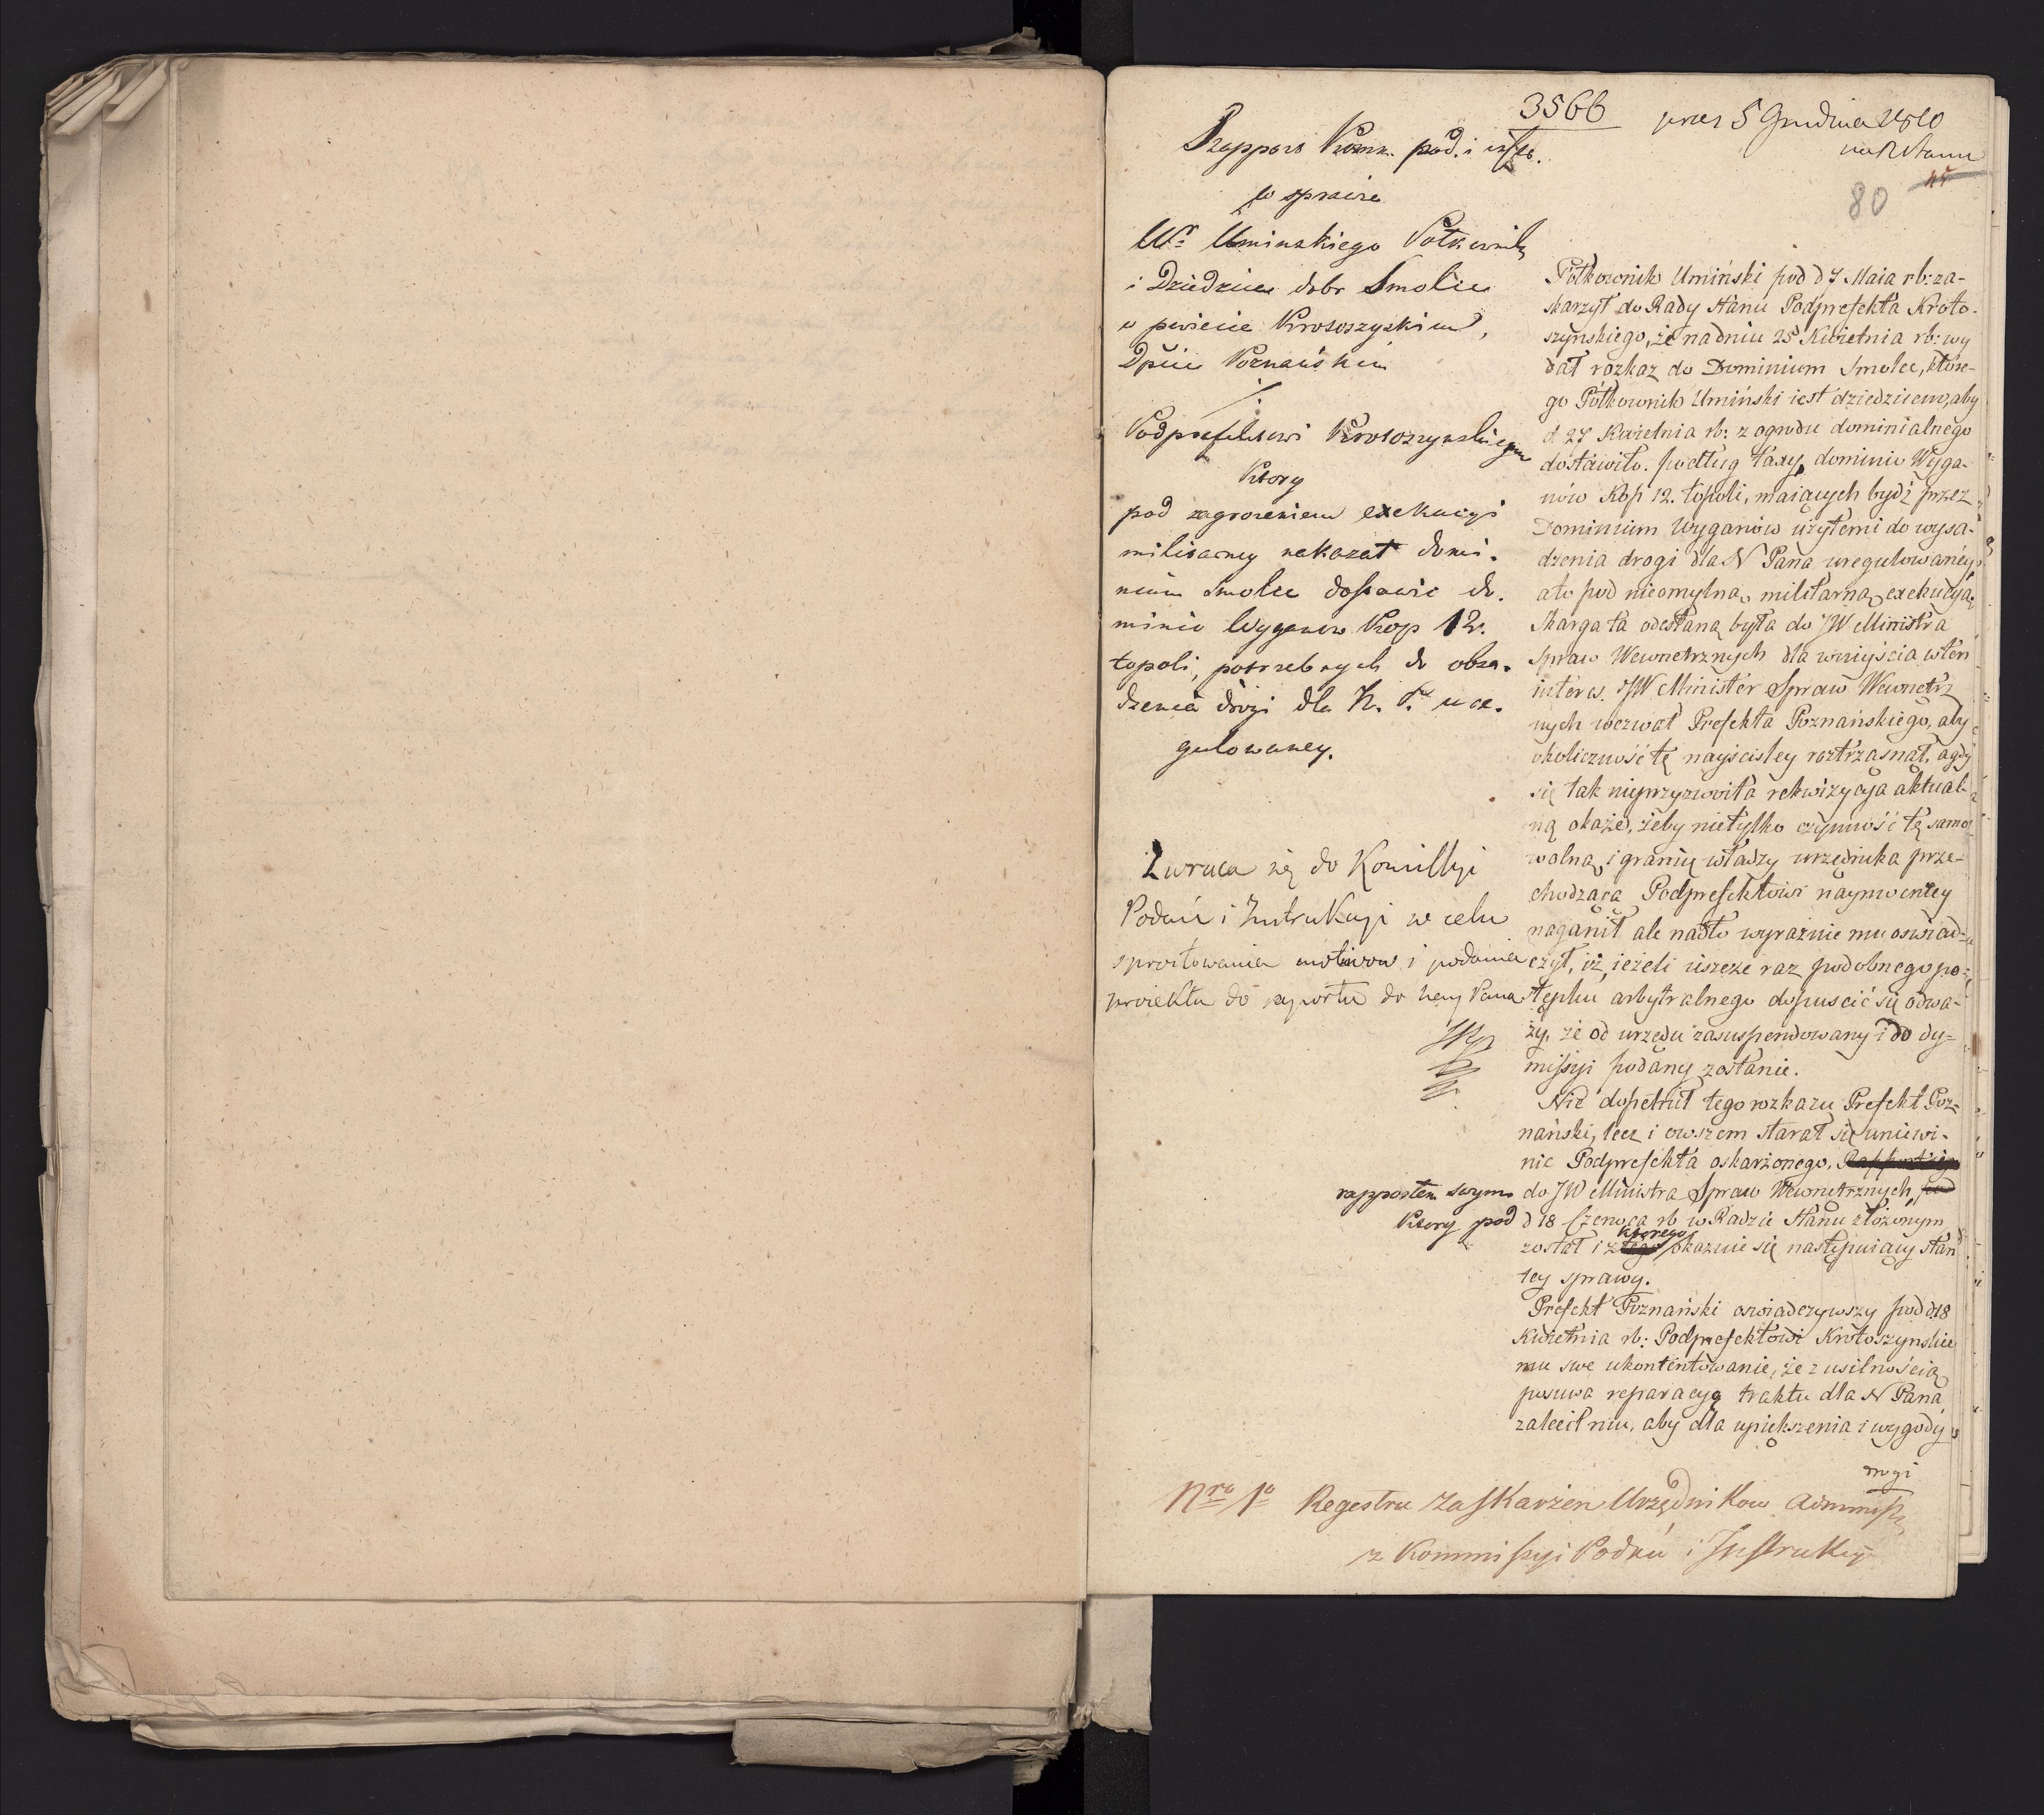 3566
pres 5 Grudnia 1810
na R Stanu
80
Rapport Komm. pod. i instr.
w sprawie
Wo Uminskiego Połkownika
i Dziedzica dobr Smolic
w powiecie Krotoszynskim,
Dpcie Poznańskim
/.
Podprefektowi Krotoszynskiemu
ktory
pod zagrozeniem exekucyi
militarney nakazał domi-
nium Smolic dostawic do-
minio Wyganow Kop 12.
topoli, potrzebnych do obsa-
dzenia drogi dla N. P. ure-
gulowaney.
Zwraca się do Kommissyi
Podań i Instrukcyi w celu
sprostowania motiwow i podania
proiektu do raportu do Nay Pana
Półkownik Umiński pod d 7 Maia rb: za-
skarzył do Rady Stanu Podprefekta Kroto-
szynskiego, że na dniu 25 Kwietnia rb: wy
dał rozkaz do Dominium Smolic, które-
go Półkownik Umiński iest dziedzicem, aby
d 27 Kwietnia rb: z ogrodu dominialnego
dostawiło podług taxy, dominio Wyga-
nów Kop 12. topoli, maiących bydź przez
Dominium Wyganów użytemi do wysa-
dzenia drogi dla N Pana uregulowanéy,
a to pod nieomylną militarną exekucyą.
Skarga ta odesłaną była do JW Ministra
Spraw Wewnetrznych dla wniyścia w ten
interes. JW Minister Spraw Wewnetrz
nych wezwał Prefekta Poznańskiego, aby
okoliczność tę nayscisley roztrzasnął, a gdy
się tak nieprzyzwoita rekwizycya aktual-
ną okaże, żeby nietylko czynność tę samo
wolną i granicę władzy urzędnika prze-
chodzącą Podprefektowi naymocniey
naganił ale nadto wyraźnie mu oswiad-
czył, iż, ieżeli ieszcze raz podobnego po-
stępku arbytralnego dopuscić się odwa-
ży, że od urzędu zasuspendowany i do dy-
missyi podany zostanie.
Nie dopełnił tego rozkazu Prefekt Poz-
nański, lecz i owszem starał się uniewi-
nic Podprefekta oskarżonego,
rapportem swym do JW Ministra Spraw Wewnetrznych,
ktory pod d 18 Czerwca rb w Radzie Stanu złożonym
został i z którego okazuie się następuiący stan
tey sprawy.
Prefekt Poznański oswiadczywszy pod d 18
Kwietnia rb: Podprefektowi Krotoszynskie
mu swe ukontentowanie, że z usilnością
posuwa reparacyą traktu dla N Pana
zalecił mu, aby dla upiększenia i wygody
Nro 1o Regestru zaskarżen Urzędnikow Administr.
z Kommissyi Podań i Instrukcyi